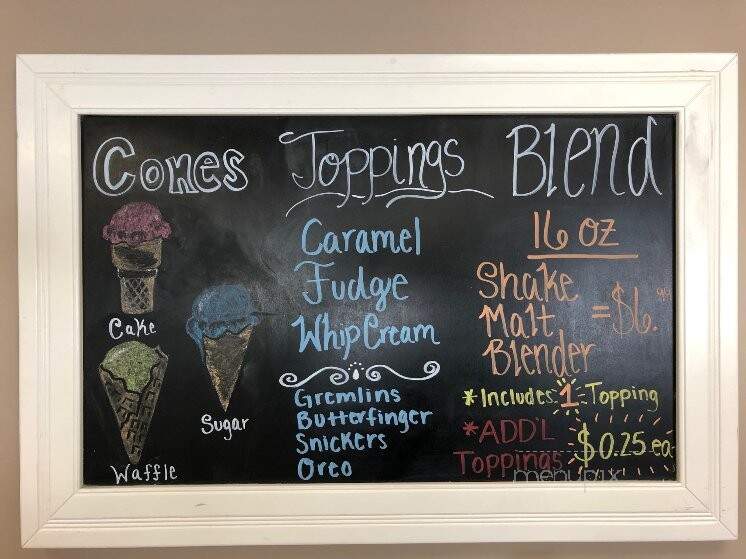 Cones
Cake
Sugar
Waffle
Toppings
Caramel
Fudge
Whip Cream
Gremlins
Butterfinger
Snickers
Oreo
Blend
16 oz
Shake
Malt
Blender
= $6.
*Includes 1 Topping
*ADD'L
Toppings $0.25 ea
menupix